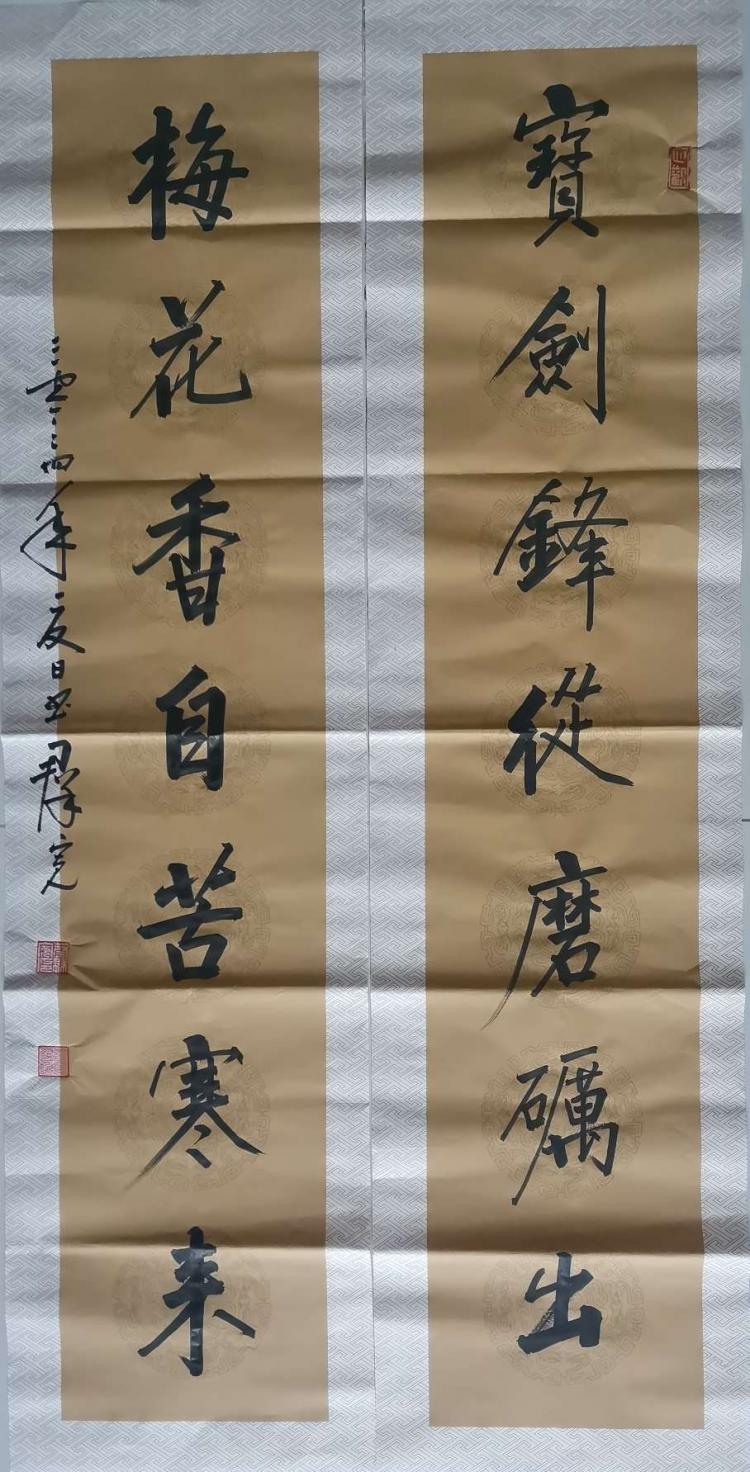 寶劍鋒從磨礪出
梅花香自苦寒来
二零二四年夏日書